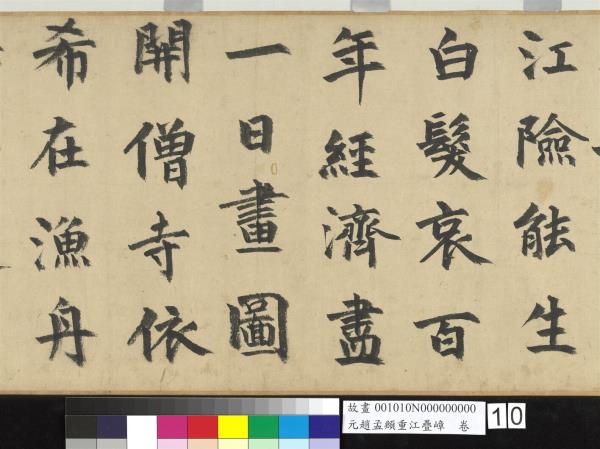 江險能生
白髮哀百
年經濟盡
一日畫圖
開僧寺依
希在漁舟
故畫 001010N000000000
元趙孟頫重江疊嶂 卷
10